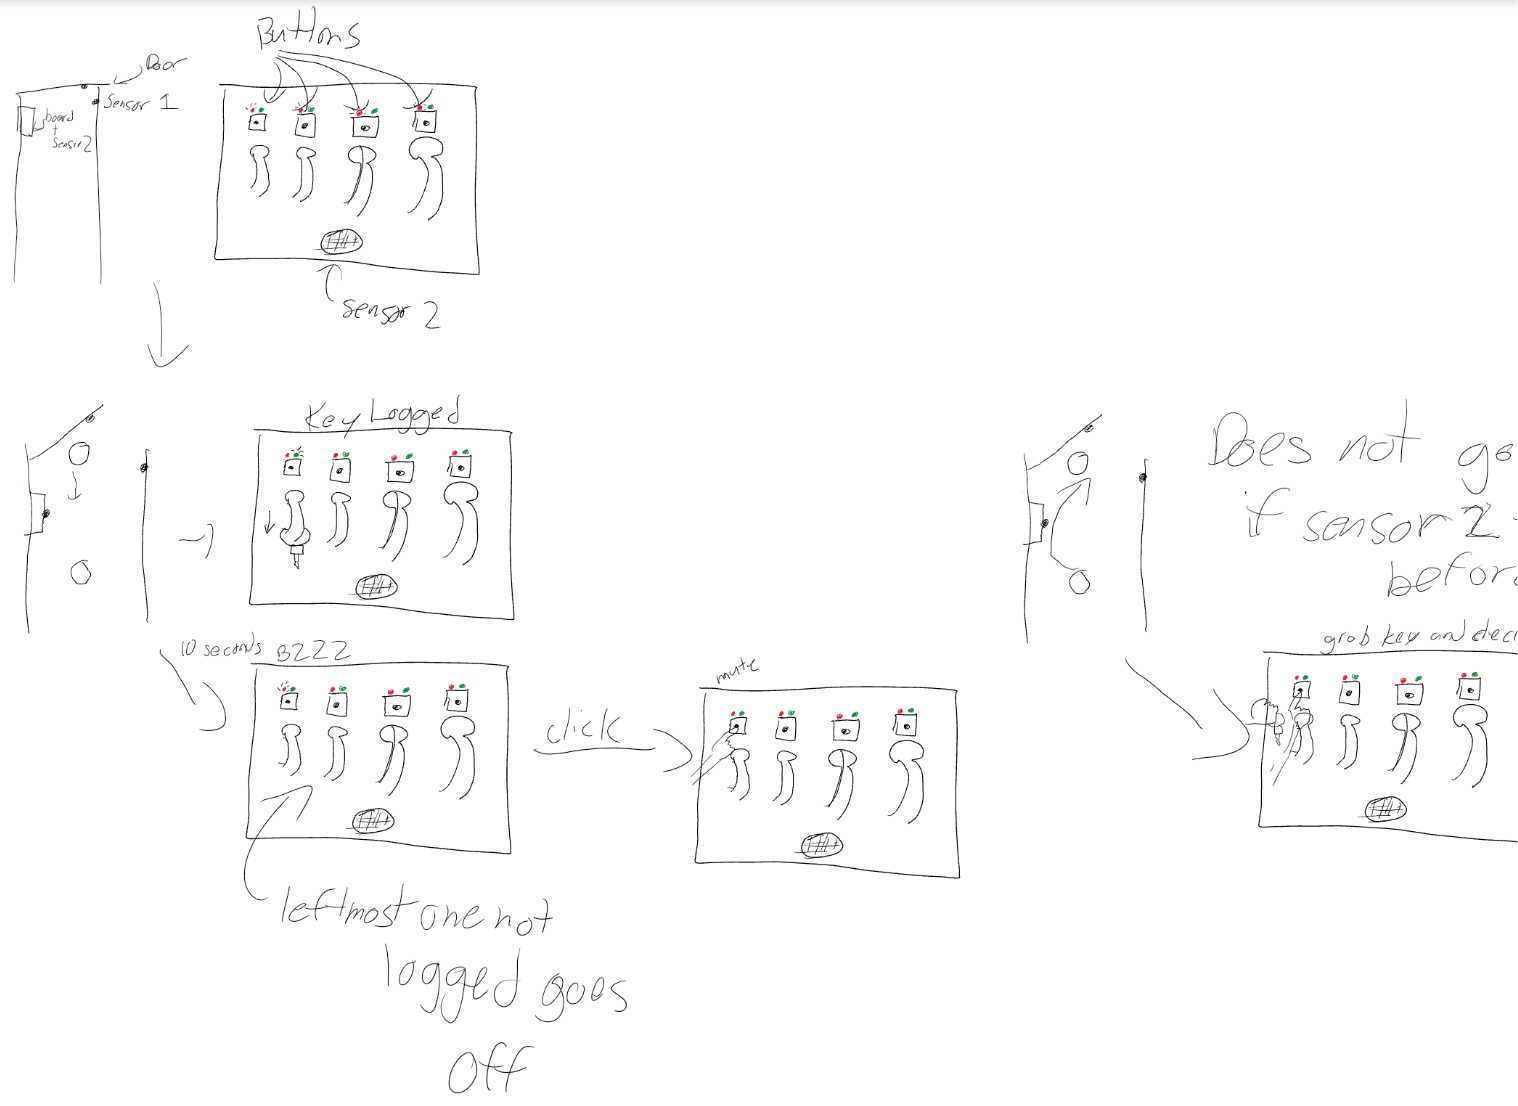 Buttons
Door
Sensor 1
board
+
Sensor 2
sensor 2
Key Logged
10 seconds BZZZ
leftmost one not
logged goes
off
click
mute
Does not go
if sensor 2
before
grab key and